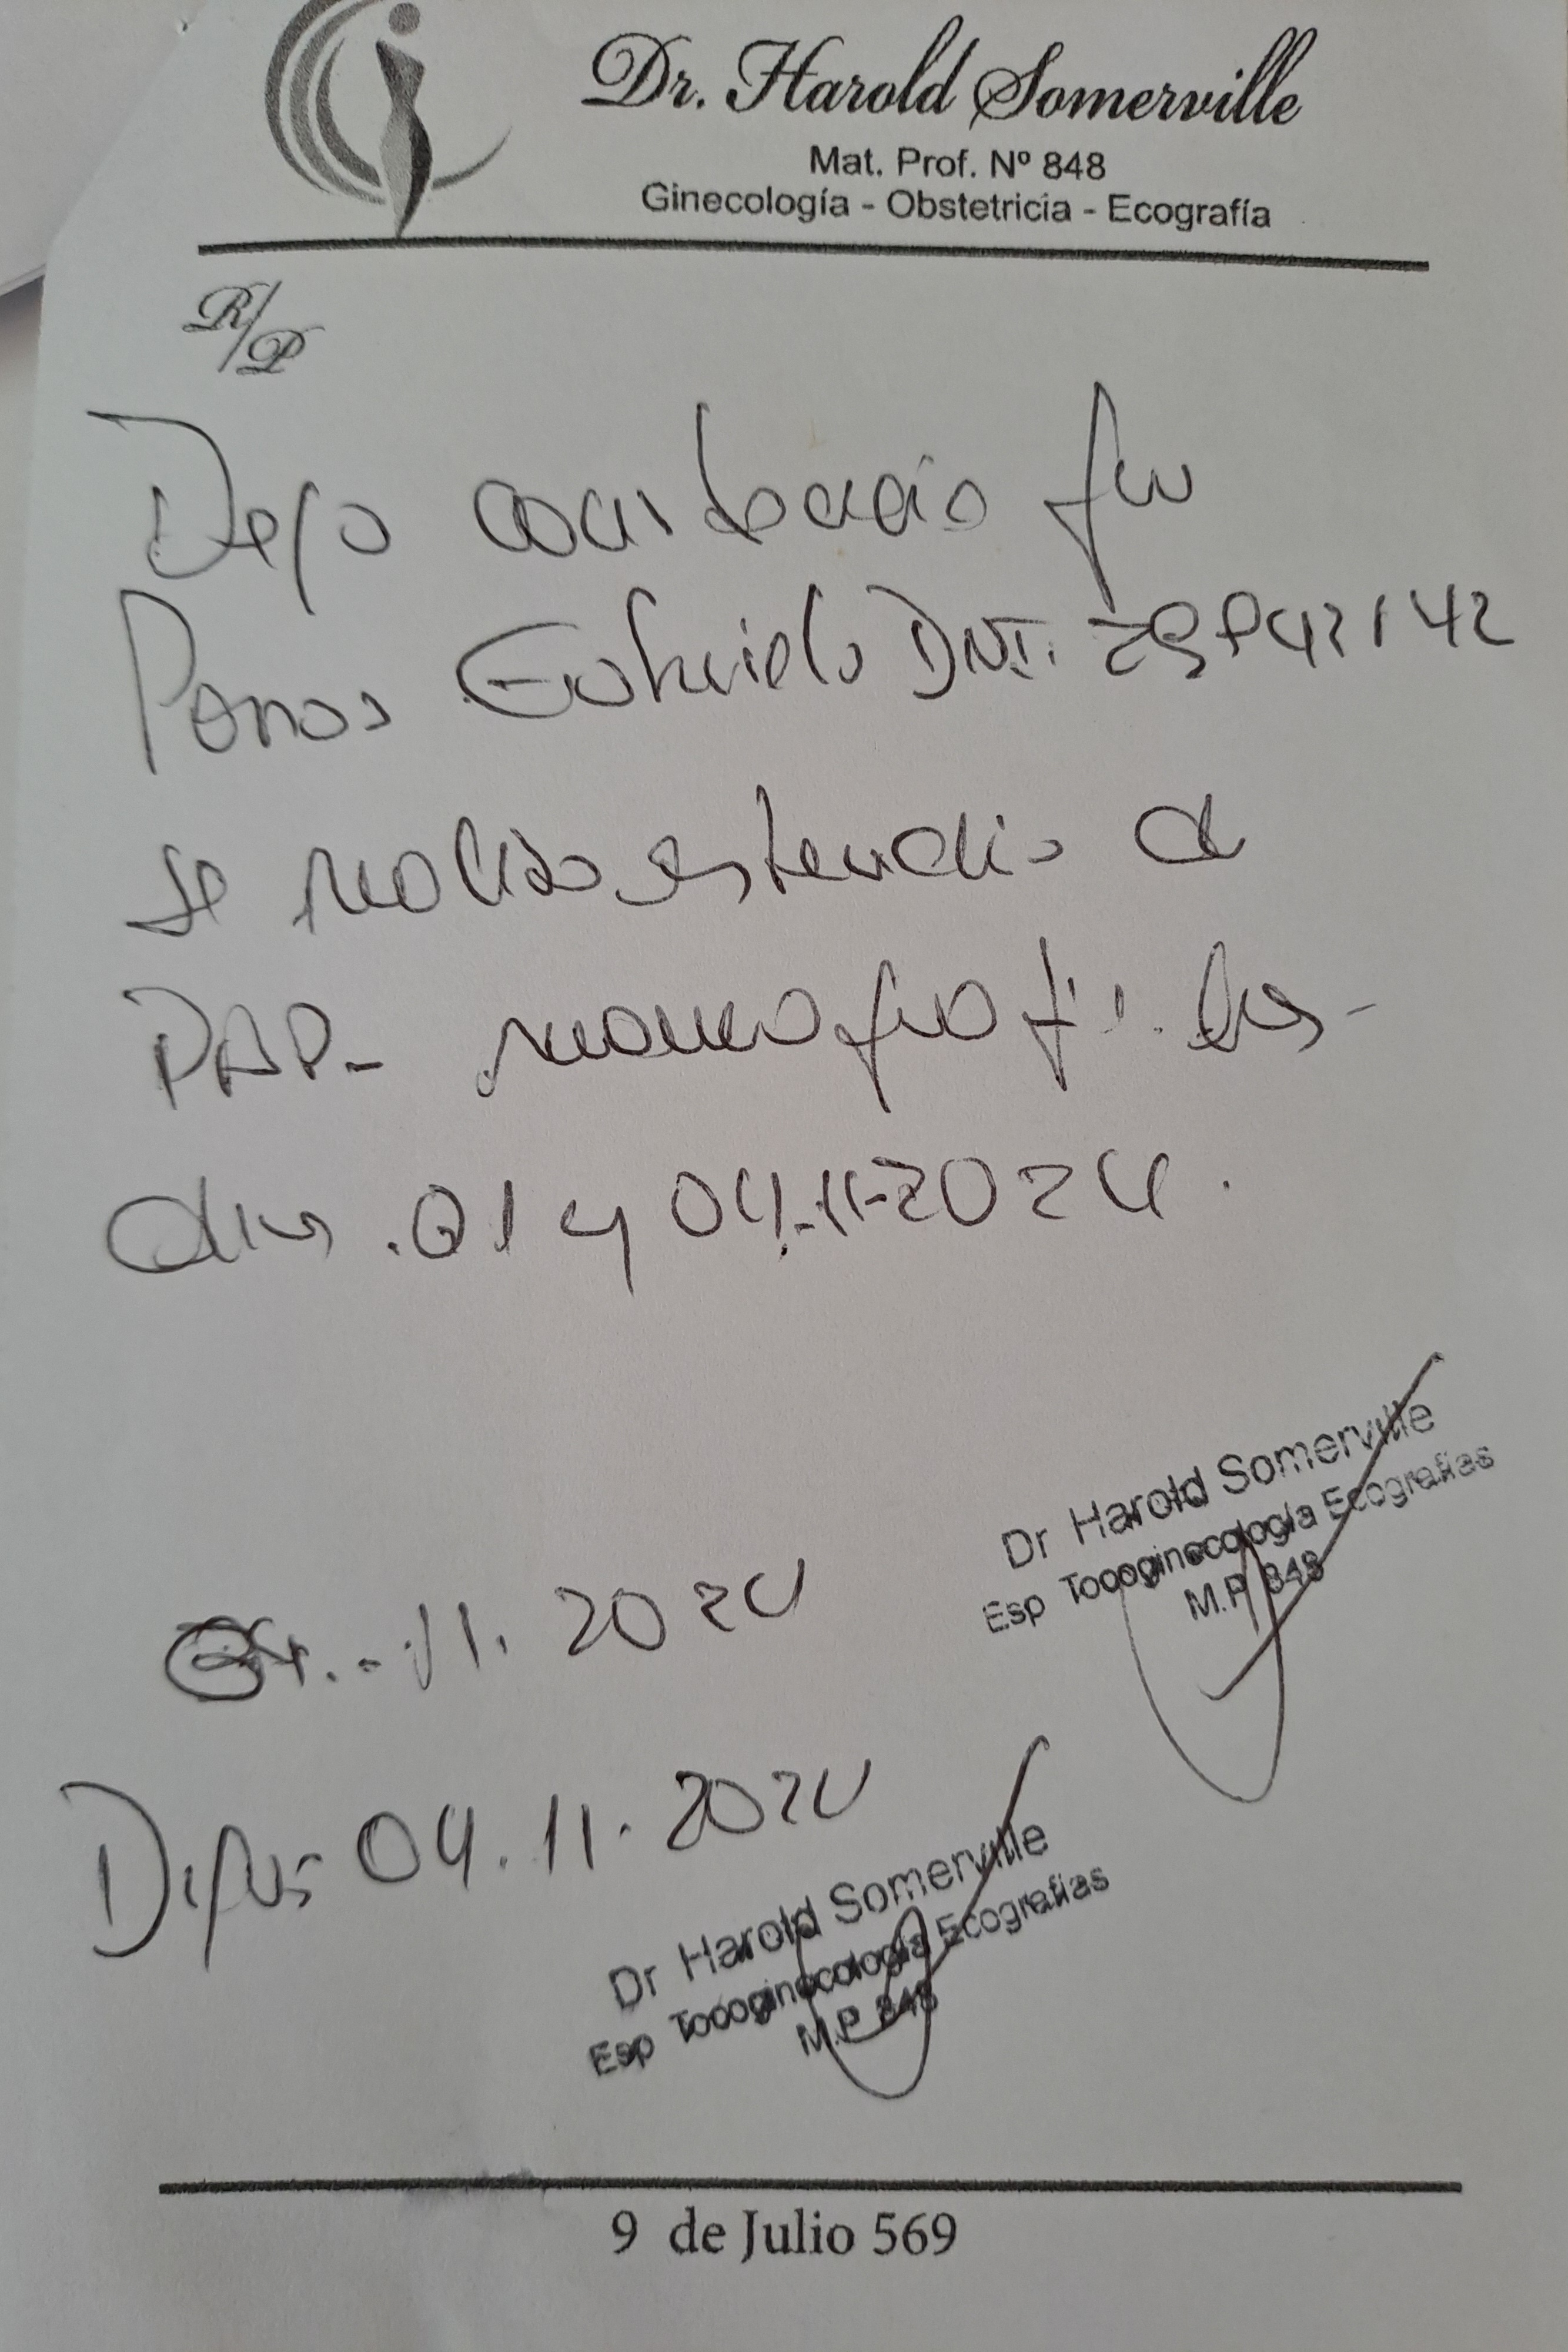 Dr. Harold Somerville
Mat. Prof. Nº 848
Ginecología - Obstetricia - Ecografía
R/P
Dejo constancia que
Gabriela DNI:
se realizo estudio de
PAP- mamografia. los
dias. 01 y 04-11-2024.
04.-11.2024
Dr Harold Somerville
Esp Tocoginecología Ecografías
M.P. 848
04.11.2024
Dr Harold Somerville
Esp Tocoginecología Ecografías
M.P. 848
9 de Julio 569